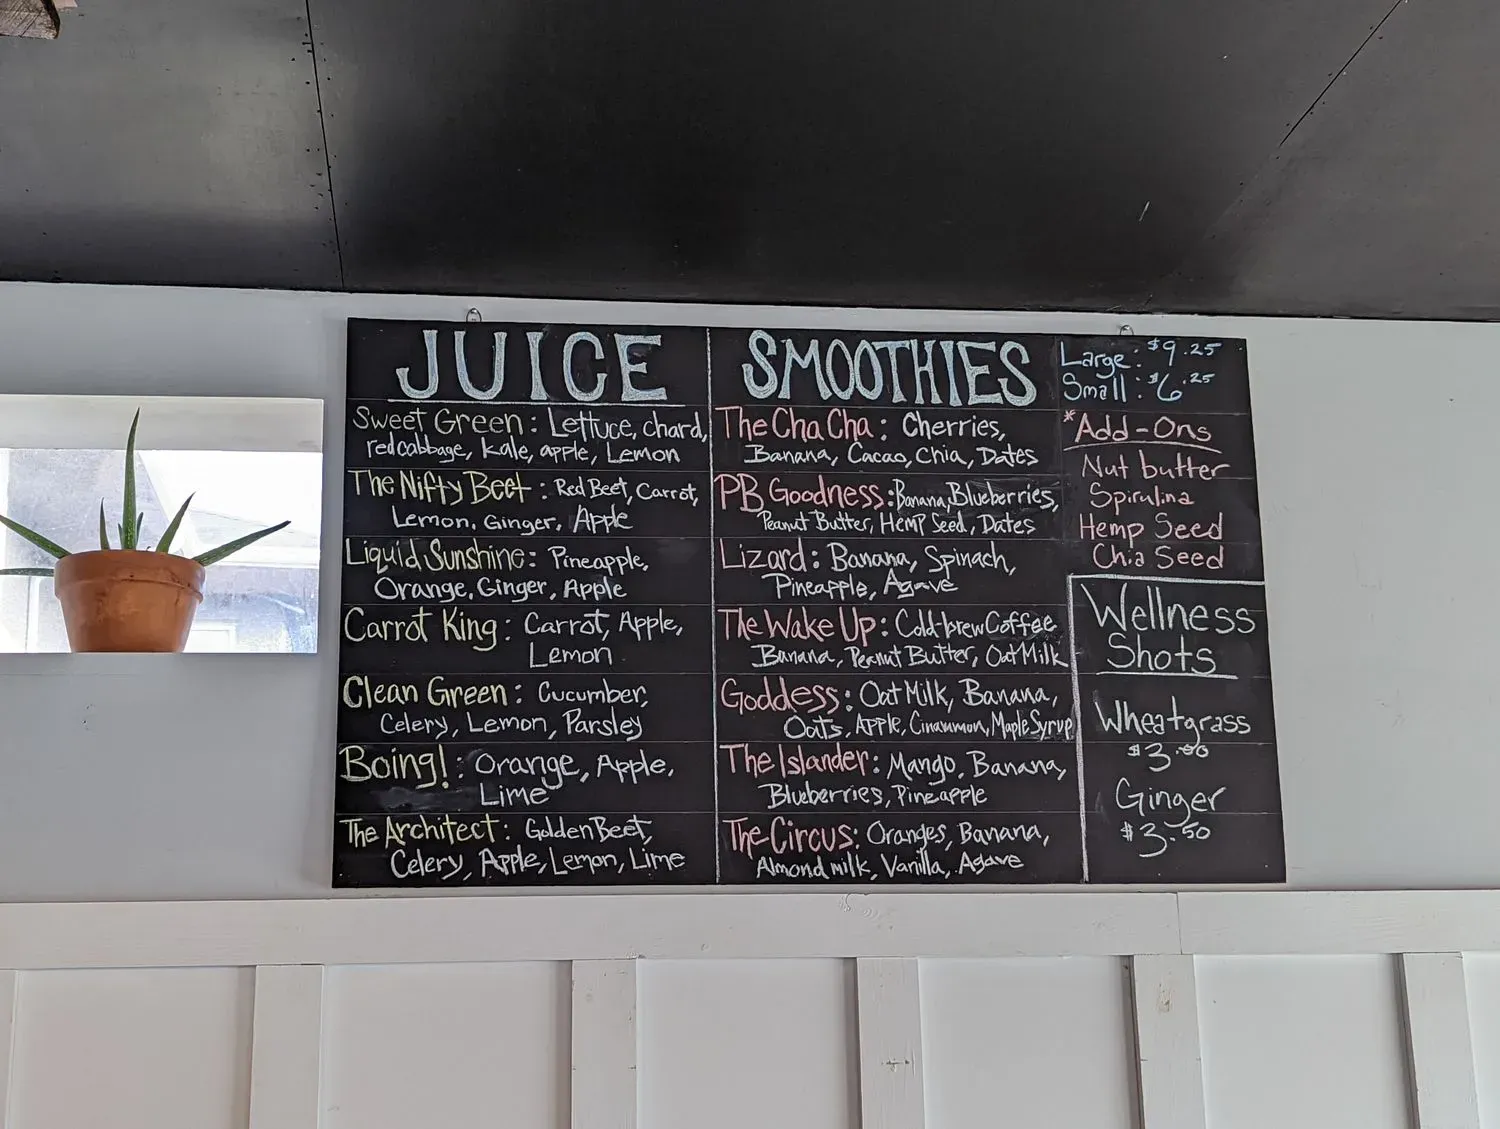 JUICE
Sweet Green: Lettuce, chard,
red cabbage, kale, apple, Lemon
The Nifty Beet: Red Beet, Carrot,
Lemon, Ginger, Apple
Liquid Sunshine: Pineapple,
Orange, Ginger, Apple
Carrot King: Carrot, Apple,
Lemon
Clean Green: Cucumber,
Celery, Lemon, Parsley
Boing!: Orange, Apple,
Lime
The Architect: Golden Beet,
Celery, Apple, Lemon, Lime
SMOOTHIES
The Cha Cha: Cherries,
Banana, Cacao, Chia, Dates
PB Goodness: Banana, Blueberries,
Peanut Butter, Hemp Seed, Dates
Lizard: Banana, Spinach,
Pineapple, Agave
The Wake Up: Cold-brew Coffee
Banana, Peanut Butter, Oat Milk
Goddess: Oat Milk, Banana,
Oats, Apple, Cinammon, Maple Syrup
The Islander: Mango, Banana,
Blueberries, Pineapple
The Circus: Oranges, Banana,
Almond milk, Vanilla, Agave
Large: $9.25
Small: $6.25
*Add-Ons
Nut butter
Spirulina
Hemp Seed
Chia Seed
Wellness
Shots
Wheatgrass
$3.00
Ginger
$3.50